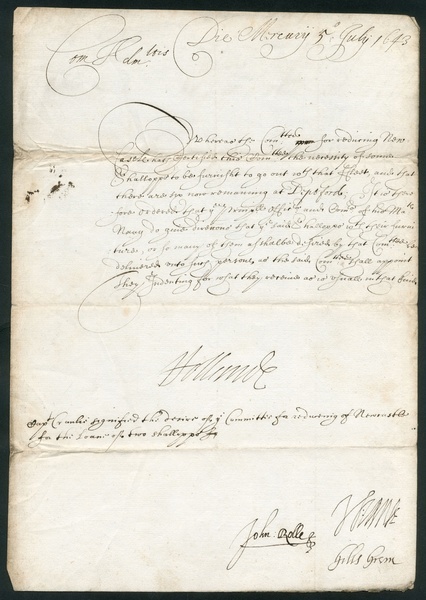 Com Adm.tis Die Mercurij 5o July 1643
Whereas the Com.ttee for reduring New=
castle have certified this Com.ttee the necessity of some
Shallopps to be furnisht to go out of that fleet and that
there are two now remaining at Deptford. It is there
fore ordered that ye principle Officrs and Com.rs of his Ma.ts
Navy do give directions that ye said Shallopps wth their furni
ture, or so many of them as shalbe desired by that Com.ttee be
delivered unto such persons as the said Com.ttee shall appoint
they Indenting for what they receive as is usuall in that kinde
Holland
Capt Crauie signified the desire of ye Committee for reducinig of Newcastle
for the Loane of two shallopps
H Vane
John Rolle
Gills Grene